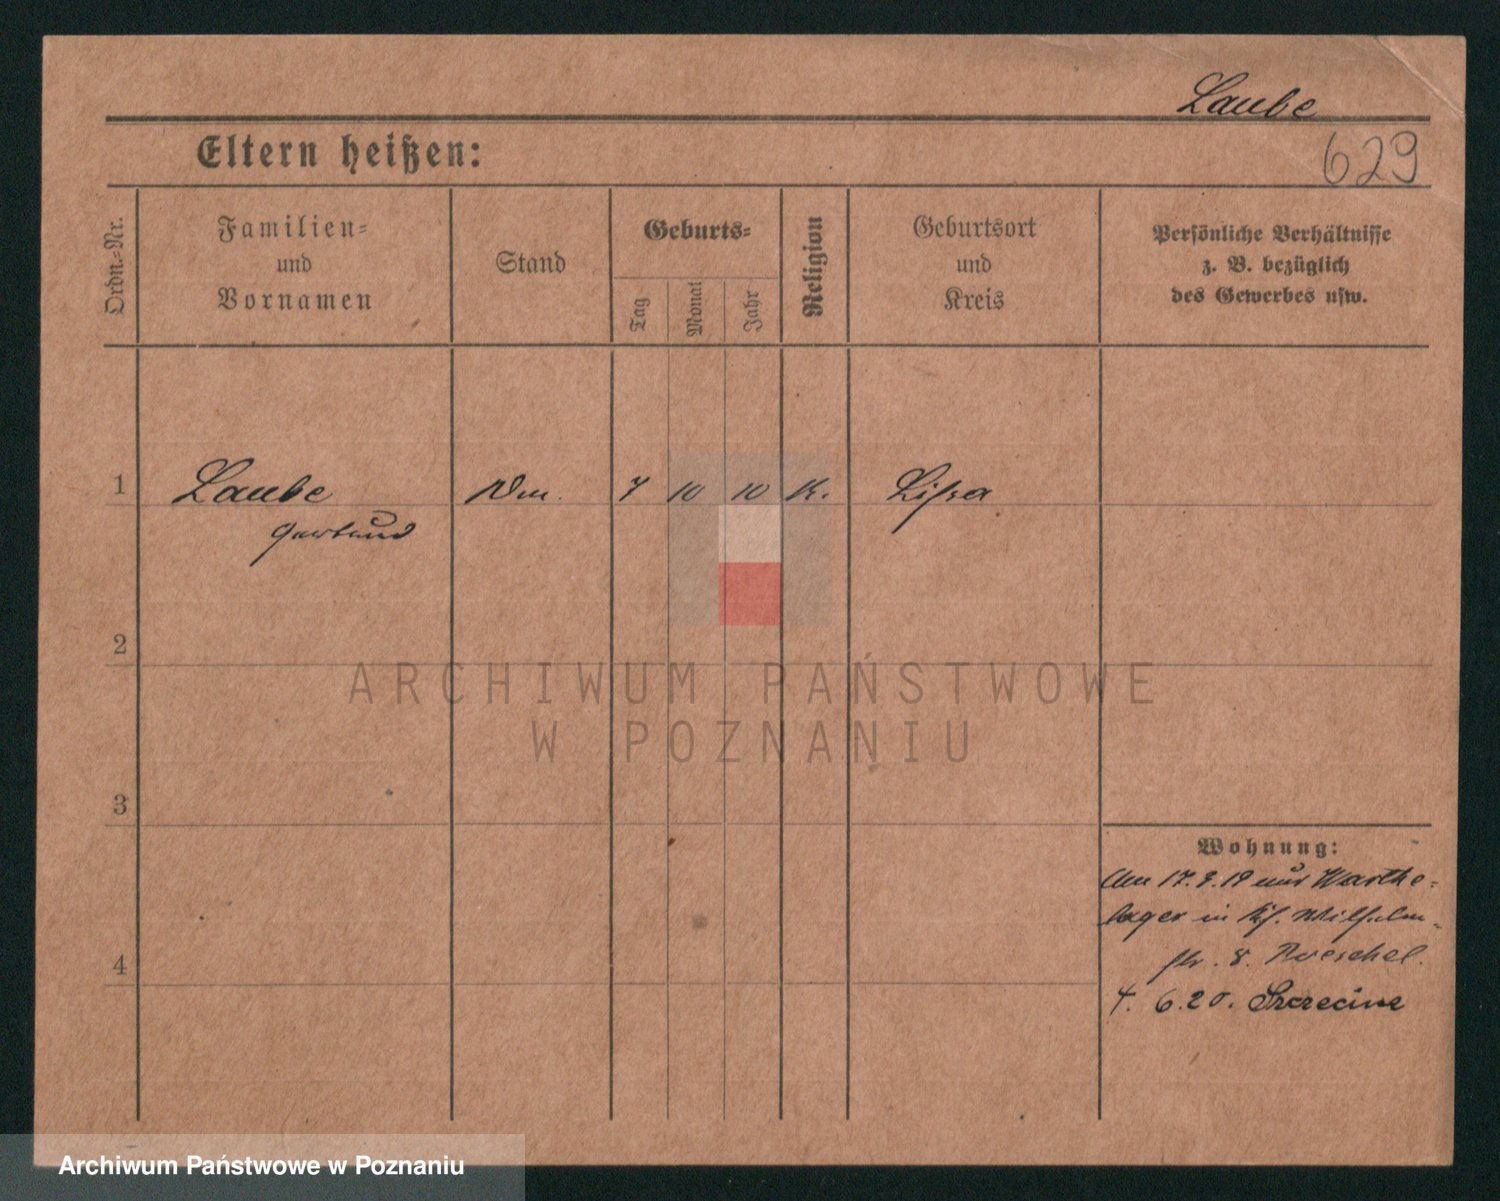 Laube
Eltern heißen:
629
Ordn.-Nr.
Familien-
und
Vornamen
Stand
Geburts-
Tag
Monat
Jahr
Religion
Geburtsort
und
Kreis
Persönliche Verhältnisse
z. B. bezüglich
des Gewerbes usw.
1
Laube
7
10
10
K.
Lissa
Gertrud
2
ARCHIWUM PAŃSTWOWE
W POZNANIU
3
Wohnung:
Am 17. 19 aus Warthe-
lager in Wilhelm-
str. 8.
4
4. 6.20. Szczecin
Archiwum Państwowe w Poznaniu